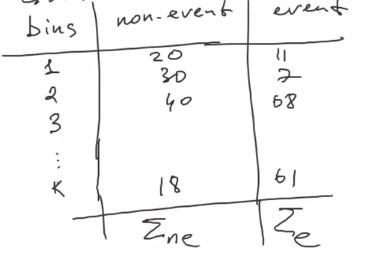 bins non-event event
1 20 11
2 30 7
3 40 68
...
K 18 61
Σne Σe